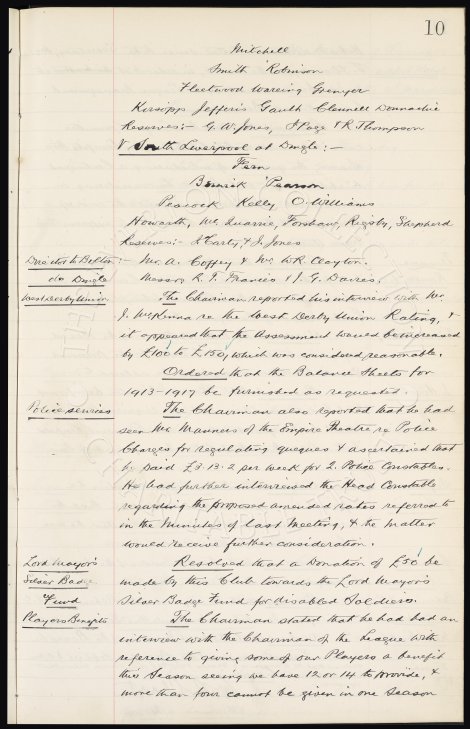 10
Mitchell
Smith Robinson
Fleetwood Wareing Grenyer
Kirsopp Jefferis Gault Clennell Donnachie
Reserves:- G. W. Jones, J Page & R Thompson
V South Liverpool at Dingle:-
Fern
Berwick Pearson
Peacock Kelly O. Williams
Howarth, Mc Quarrie, Forshaw, Rigsby, Shepherd
Reserves:- J Carty, & J. Jones
Director to Bolton:- Mr. A. Coffey & Mr. W R Clayton.
do Dingle Messrs R. T. Francis & J. G. Davies.
West Derby Union The Chairman reported his interview with Mr.
J. McKenna re the West Derby Union Rating, &
it appeared that the Assessment would be increased
by £100 to £150, which was considered reasonable.
Ordered that the Balance Sheets for
1913-1917 be furnished as requested.
Police services The Chairman also reported that he had
seen Mr Manners of the Empire Theatre re Police
Charges for regulating queques & ascertained that
he paid £3.13.2 per week for 2 Police Constables.
He had further interviewed the Head Constable
regarding the proposed amended rates referred to
in the Minutes of last Meeting, & the matter
would receive further consideration.
Lord Mayor's Resolved that a Donation of £50 be
Silver Badge made by this Club towards the Lord Mayor's
Fund Silver Badge Fund for disabled Soldiers.
Players Benefits The Chairman stated that he had had an
interview with the Chairman of the League with
reference to giving some of our Players a benefit
this Season seeing we have 12 or 14 to provide, &
more than four cannot be given in one Season